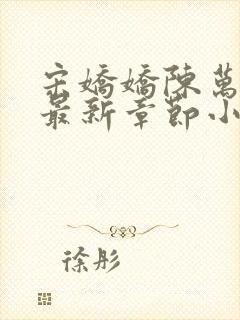 宋嬌嬌陳萬
最新章節小
徐彤